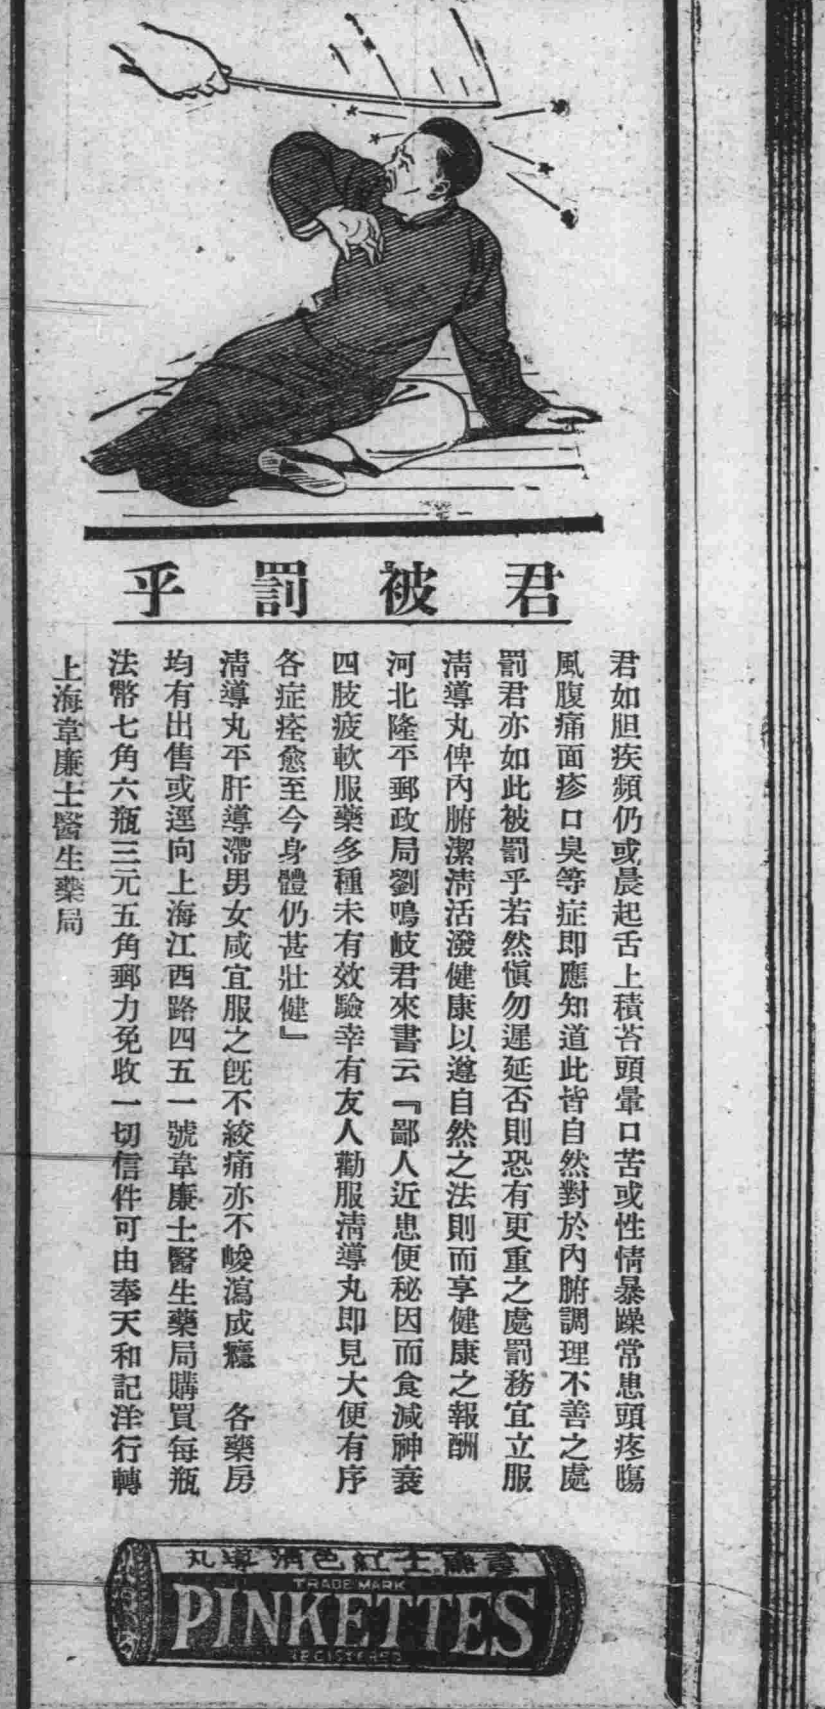 君被罰乎
君如胆疾頻仍或晨起舌上積苔頭暈口苦或性情暴躁常患頭疼腸
風腹痛面疹口臭等症即應知道此皆自然對於內腑調理不善之處
罰君亦如此被罰乎若然愼勿遲延否則恐有更重之處罰務宜立服
淸導丸俾內腑潔淸活潑健康以遵自然之法則而享健康之報酬
河北隆平郵政局劉鳴岐君來書云『鄙人近患便秘因而食減神衰
四肢疲軟服藥多種未有效驗幸有友人勸服淸導丸即見大便有序
各症痊愈至今身體仍甚壯健』
淸導丸平肝導滯男女咸宜服之旣不絞痛亦不峻瀉成癮 各藥房
均有出售或逕向上海江西路四五一號韋廉士醫生藥局購買每瓶
法幣七角六瓶三元五角郵力免收一切信件可由奉天和記洋行轉
上海韋廉士醫生藥局
韋廉士紅色淸導丸
TRADE MARK
PINKETTES
REGISTERED